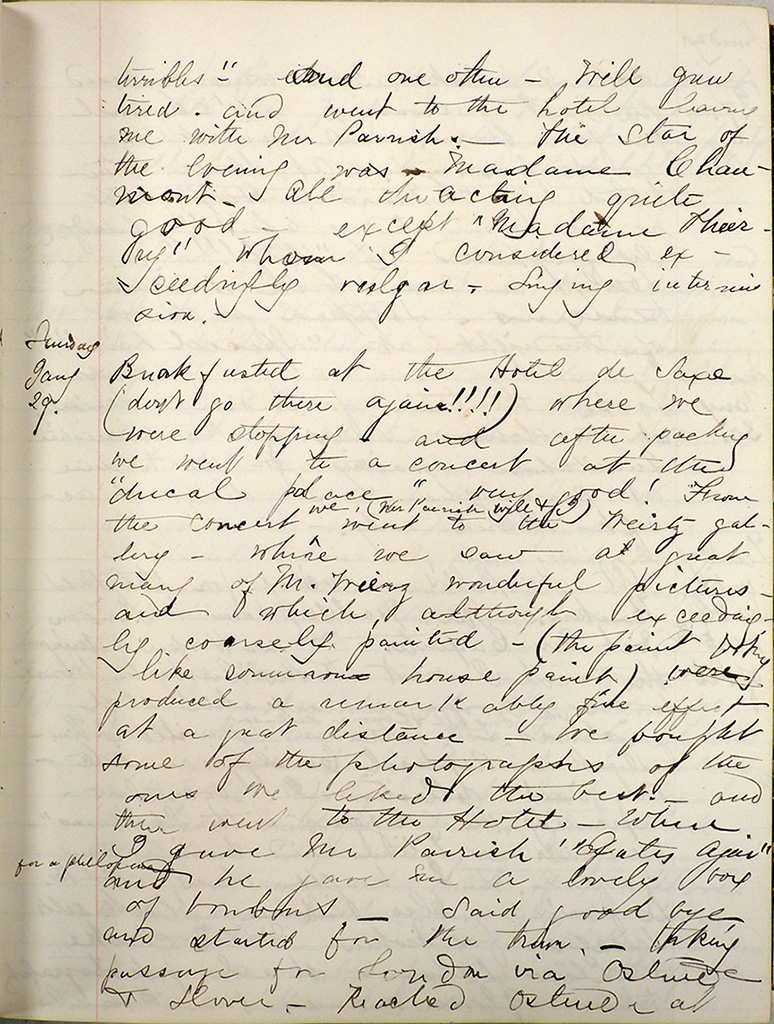 terribles" and one other – Will grew
tired. and went to the hotel leaving
me with Mr Parrish. – The star of
the evening was – Madame Chau-
mont – All the acting quite
good – except "Madame Thier-
ry" whom I considered ex-
ceedingly vulgar – Singing intermis
sion.
Sunday
Jany
29.
Breakfasted at the Hotel de Saxe
(don't go there again!!!!) where we
were stopping – and after packing
we went to a concert at the
"ducal palace" very good! From
the concert we, (Mr Parrish Will & I) went to the Weirtz gal-
lery – where we saw a great
many of M. Wierz wonderful pictures –
and which, although exceeding-
ly coarsely painted – (the paint
like common house paint) were
produced a remarkably fine effect
at a great distance – We bought
some of the photographs of the
ones we liked the best. – and
then went to the Hotel – Where
I gave Mr Parrish "Gates Ajar"
for a
and he gave me a lovely box
of bonbons – Said good bye
and started for the train. – taking
passage for London via Ostende
& Dover – Reached Ostende at